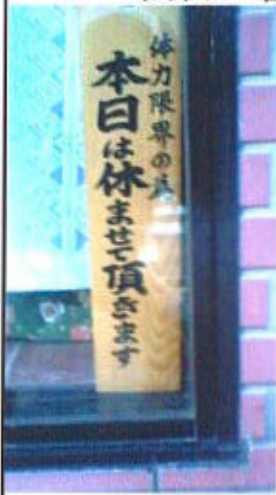 体力限界の為
本日は休ませて頂きます